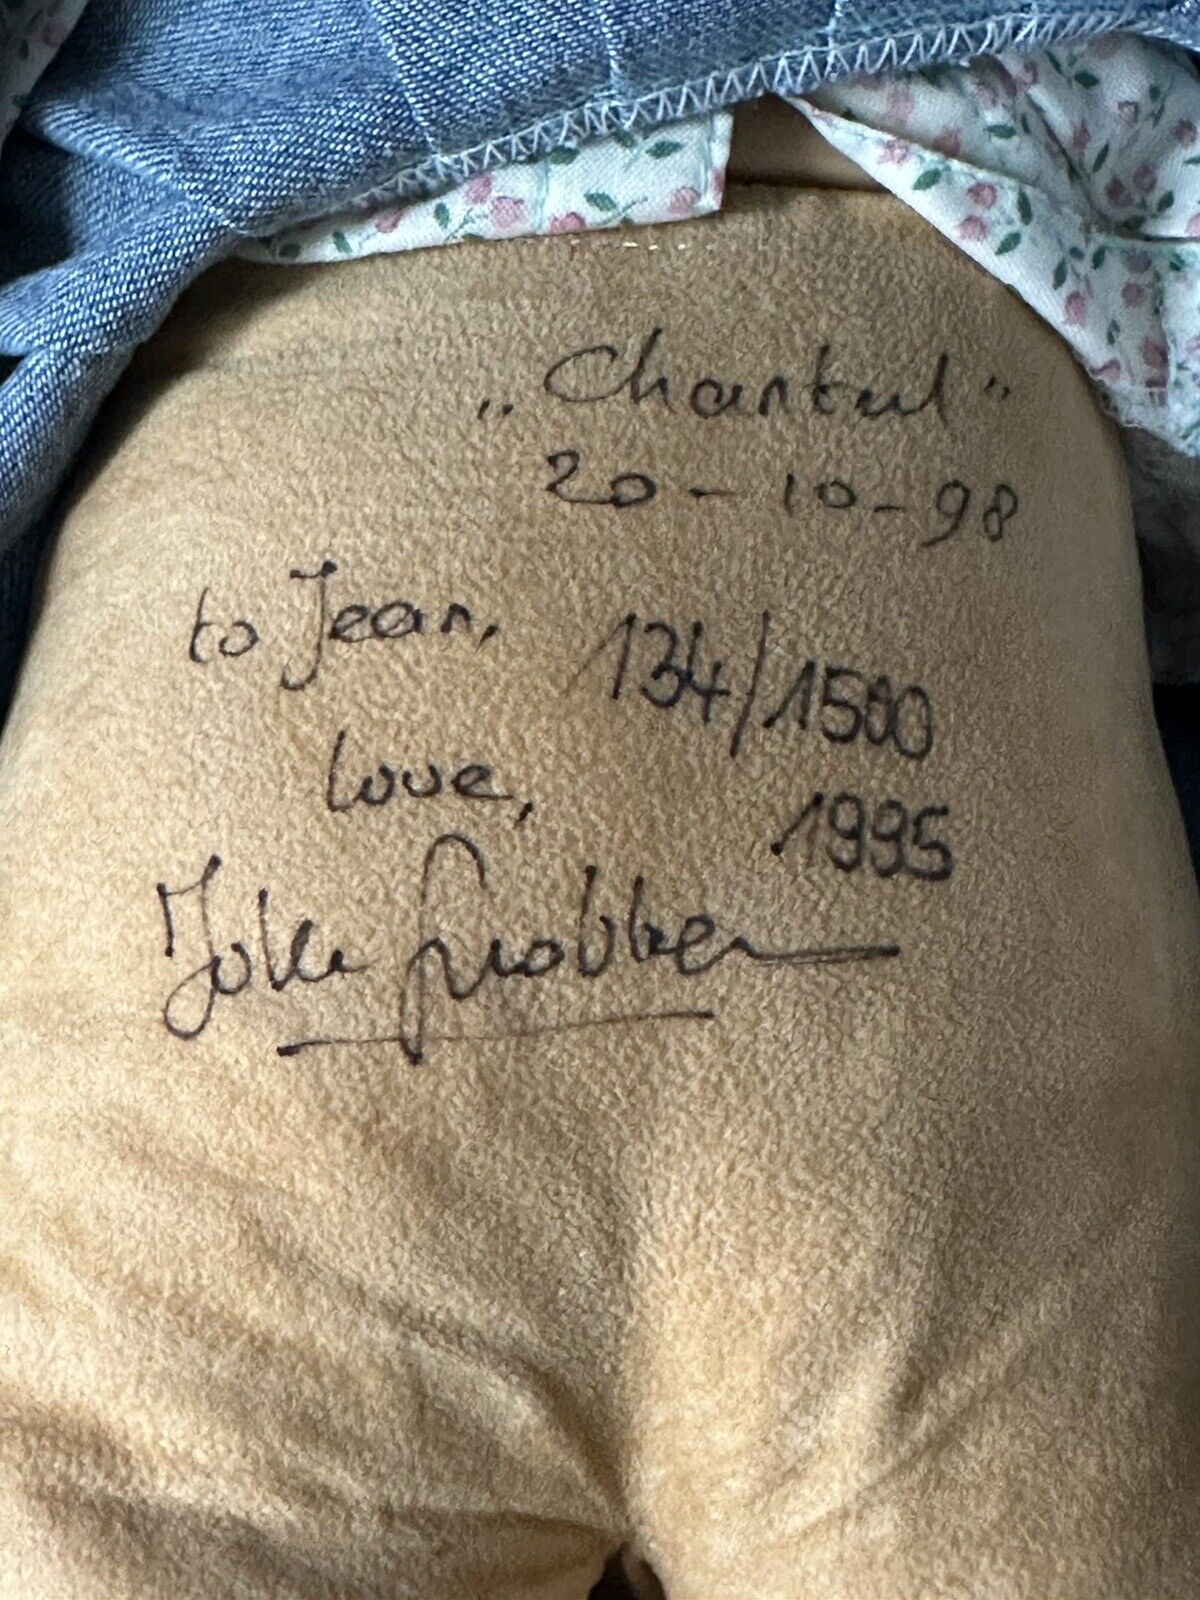 „Chantal"
20-10-98
to Jean,
134/1500
love,
1995
Joke Grobben